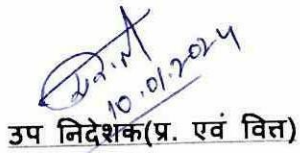 10.01.2024
उप निदेशक(प्र. एवं वित्त)